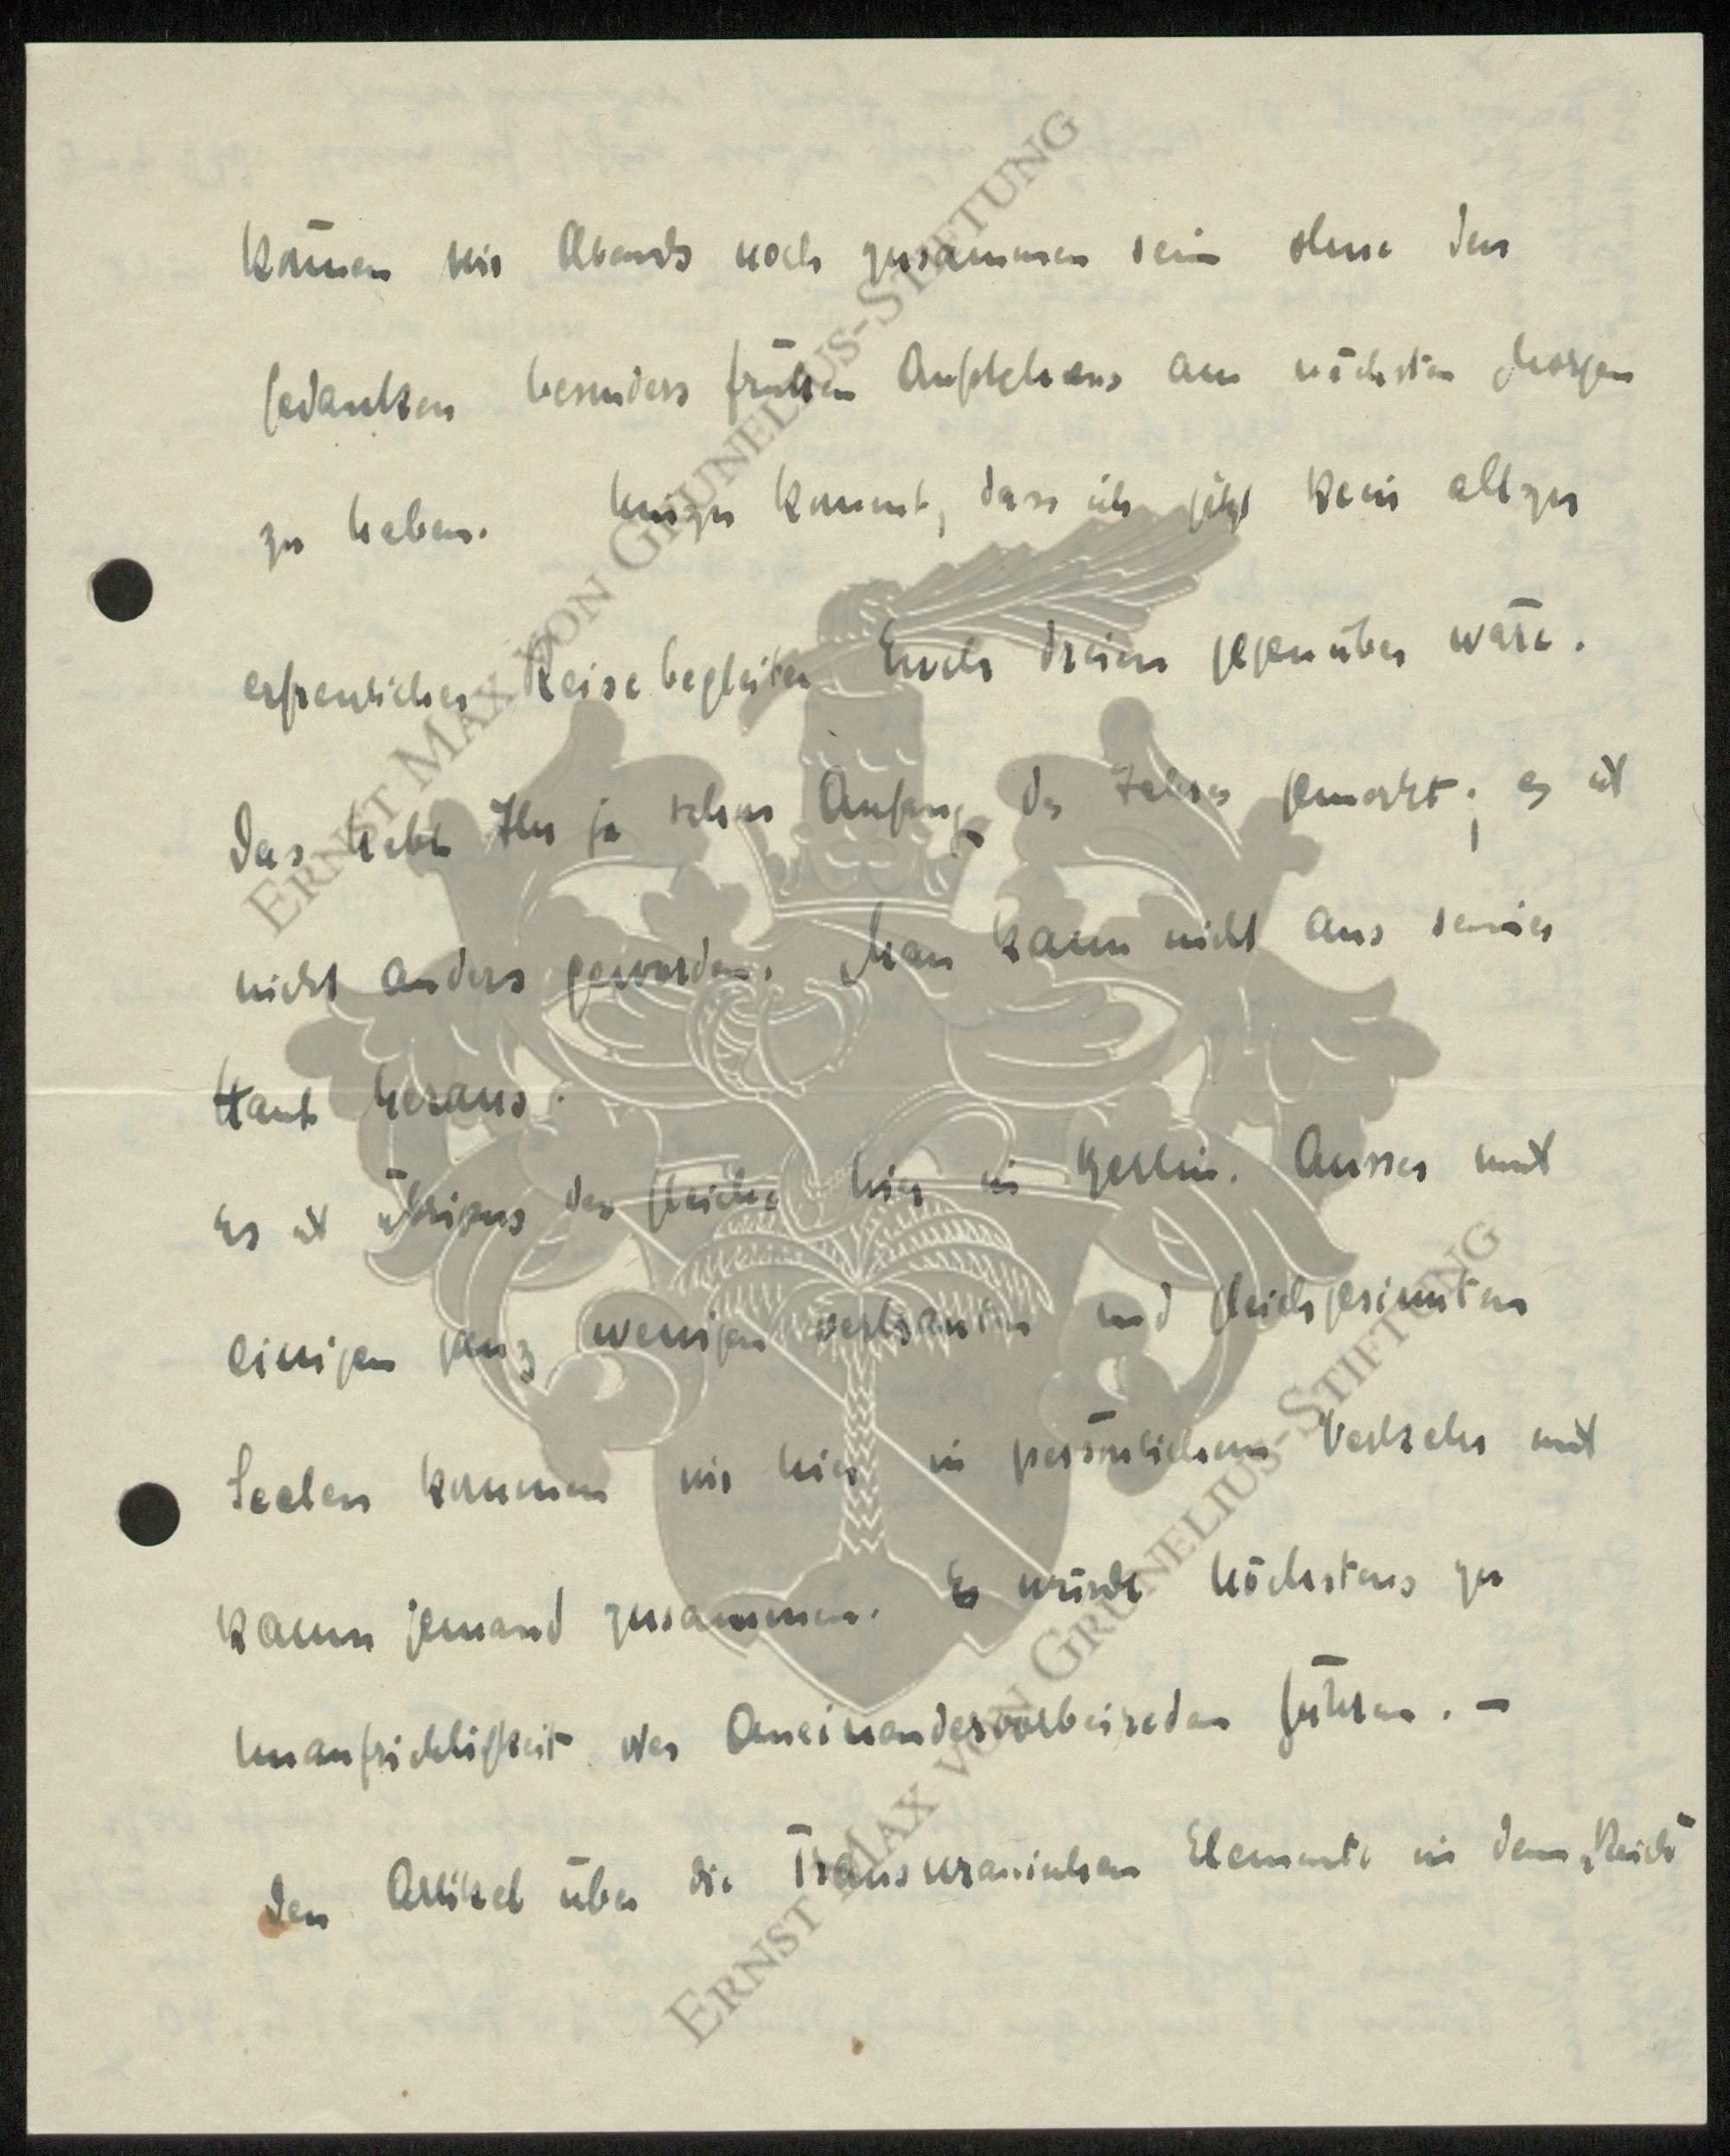 können wir Abends noch zusammen sein ohne den
Gedanken besonders frühen Aufstehens am nächsten Morgen
zu haben. Hinzu kommt, dass ich jetzt kein allzu
erfreulicher Reisebegleiter Euch dreien gegenüber wäre.
Das habt Ihr ja schon Anfang des Jahres gemerkt; es ist
nicht anders geworden. Man kann nicht aus seiner
Haut heraus.
Es ist übrigens das gleiche hier in Berlin. Ausser mit
einigen ganz wenigen vertrauten und gleichgesinnten
Seelen kommen wir hier in persönlichem Verkehr mit
kaum jemand zusammen. Es würde höchstens zu
Unaufrichtigkeit oder Aneinandervorbeireden führen. –
Den Artikel über die Transuranischen Elemente in dem „Reich"
ERNST MAX VON GRUNELIUS-STIFTUNG
ERNST MAX VON GRUNELIUS-STIFTUNG